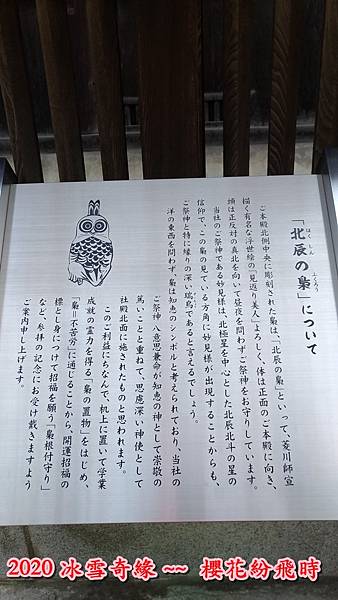 「北辰の梟」について
ほくしん
ふくろう
ご本殿北側中央に彫刻された梟は、「北辰の梟」といって、菱川師宣
描く有名な浮世絵の「見返り美人」よろしく、体は正面のご本殿に向き、
頭は正反対の真北を向いて昼夜を問わずご祭神をお守りしています。
当社のご祭神である妙見様は、北極星を中心とした北辰北斗の星の
信仰で、この梟の見ている方角に妙見様が出現することからも、
ご祭神と特に縁りの深い瑞鳥であると言えるでしょう。
洋の東西を問わず、梟は知恵のシンボルと考えられており、当社の
ご祭神・八意思兼命が知恵の神として崇敬の
篤いことと重ねて、思慮深い神使として
社殿北面に施されたものと思われます。
このご利益にちなんで、机上に置いて学業
成就の霊力を得る「梟の置物」をはじめ、
「梟=不苦労」に通じることから、開運招福の
標とし身につけて招福を願う「梟根付守り」
など、参拝の記念にお受け戴きますよう
ご案内申し上げます。
2020 冰雪奇緣 ~~ 櫻花紛飛時